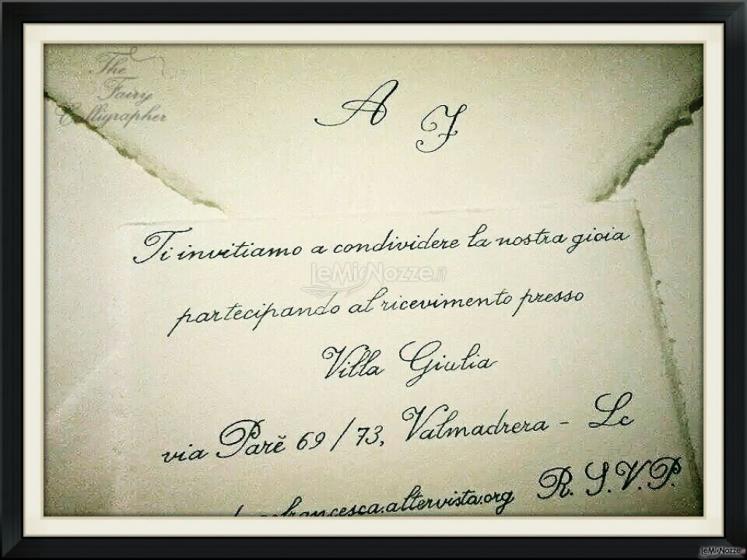 The
Fairy
Calligrapher
A F
Ti invitiamo a condividere la nostra gioia
leMieNozze.it
partecipando al ricevimento presso
Villa Giulia
via Parè 69/73, Valmadrera - Lc
francesca.altervista.org R.S.V.P.
leMieNozze.it